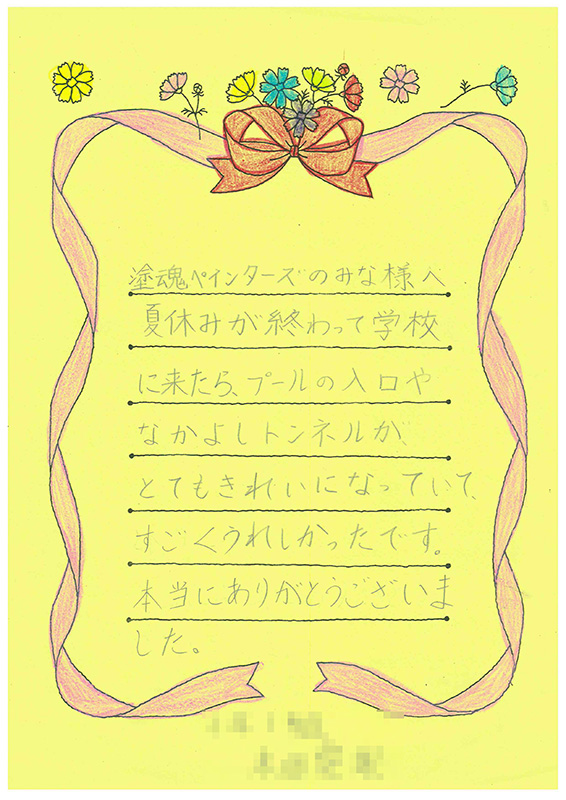 塗魂ペインターズのみな様へ
夏休みが終わって学校
に来たら、プールの入口や
なかよしトンネルが、
とてもきれいになっていて、
すごくうれしかったです。
本当にありがとうございま
した。